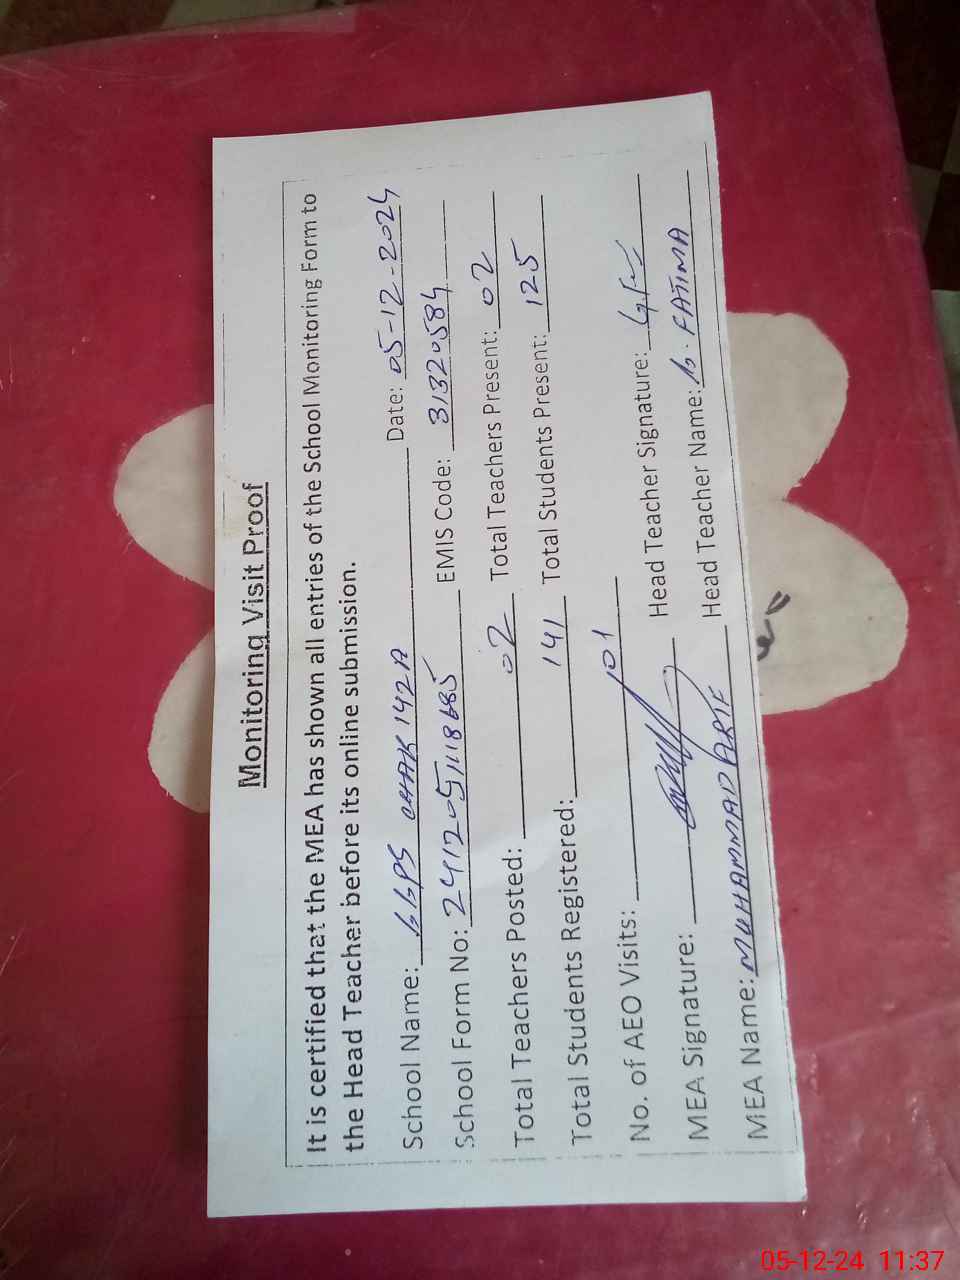 Monitoring Visit Proof
It is certified that the MEA has shown all entries of the School Monitoring Form to
the Head Teacher before its online submission.
School Name: GGPS CHAK 142A Date: 05-12-2024
School Form No: 241205118685 EMIS Code: 31320584
Total Teachers Posted: 02 Total Teachers Present: 02
Total Students Registered: 141 Total Students Present: 125
No. of AEO Visits: 01
MEA Signature: Head Teacher Signature:
MEA Name: MUHAMMAD ARIF Head Teacher Name: G. FATIMA
05-12-24 11:37